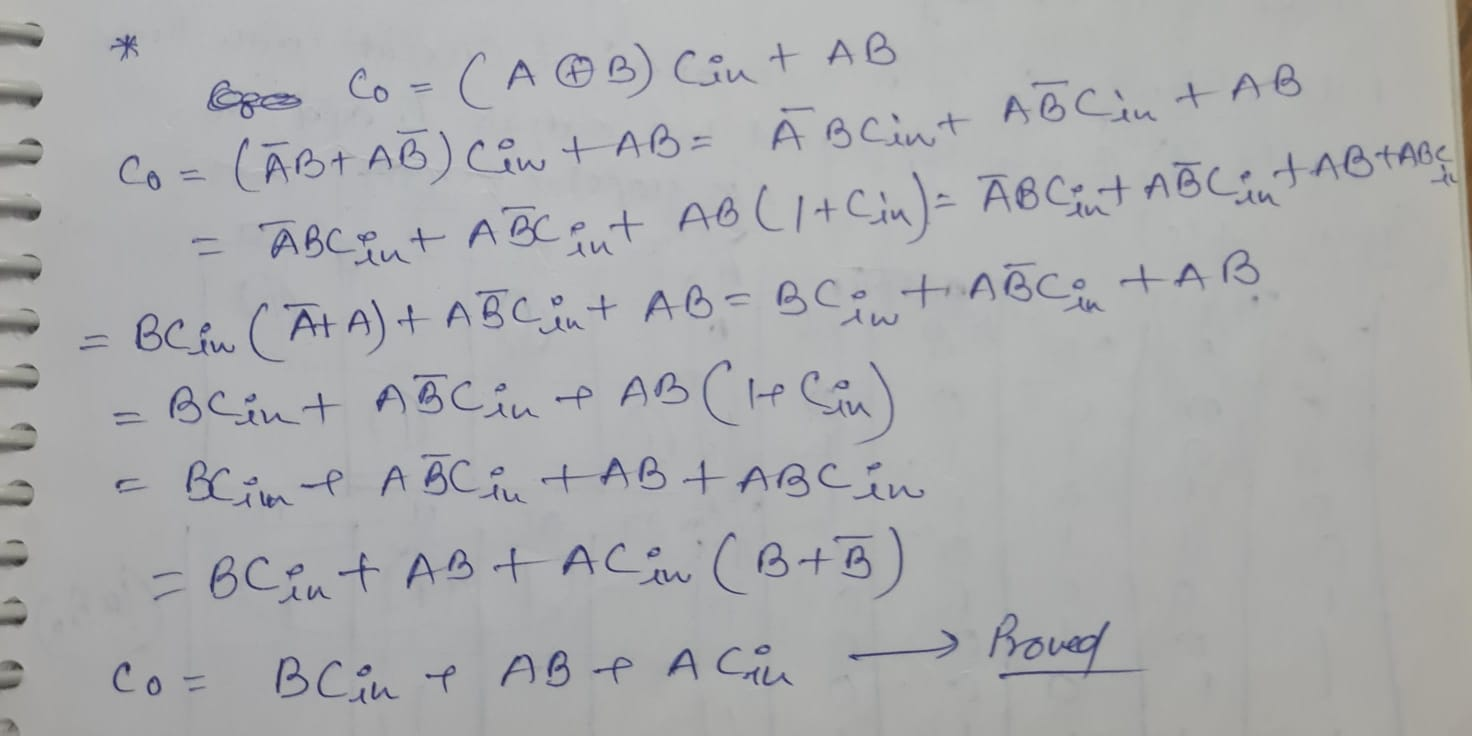 *
C₀ = (A ⊕ B) Cin + AB
C₀ = (A̅B + AB̅) Cin + AB = A̅BCin + AB̅Cin + AB
= A̅BCin + AB̅Cin + AB(1+Cin) = A̅BCin + AB̅Cin + AB + ABCin
= BCin (A̅+A) + AB̅Cin + AB = BCin + AB̅Cin + AB
= BCin + AB̅Cin + AB(1+Cin)
= BCin + AB̅Cin + AB + ABCin
= BCin + AB + ACin (B+B̅)
C₀ = BCin + AB + ACin → Proved